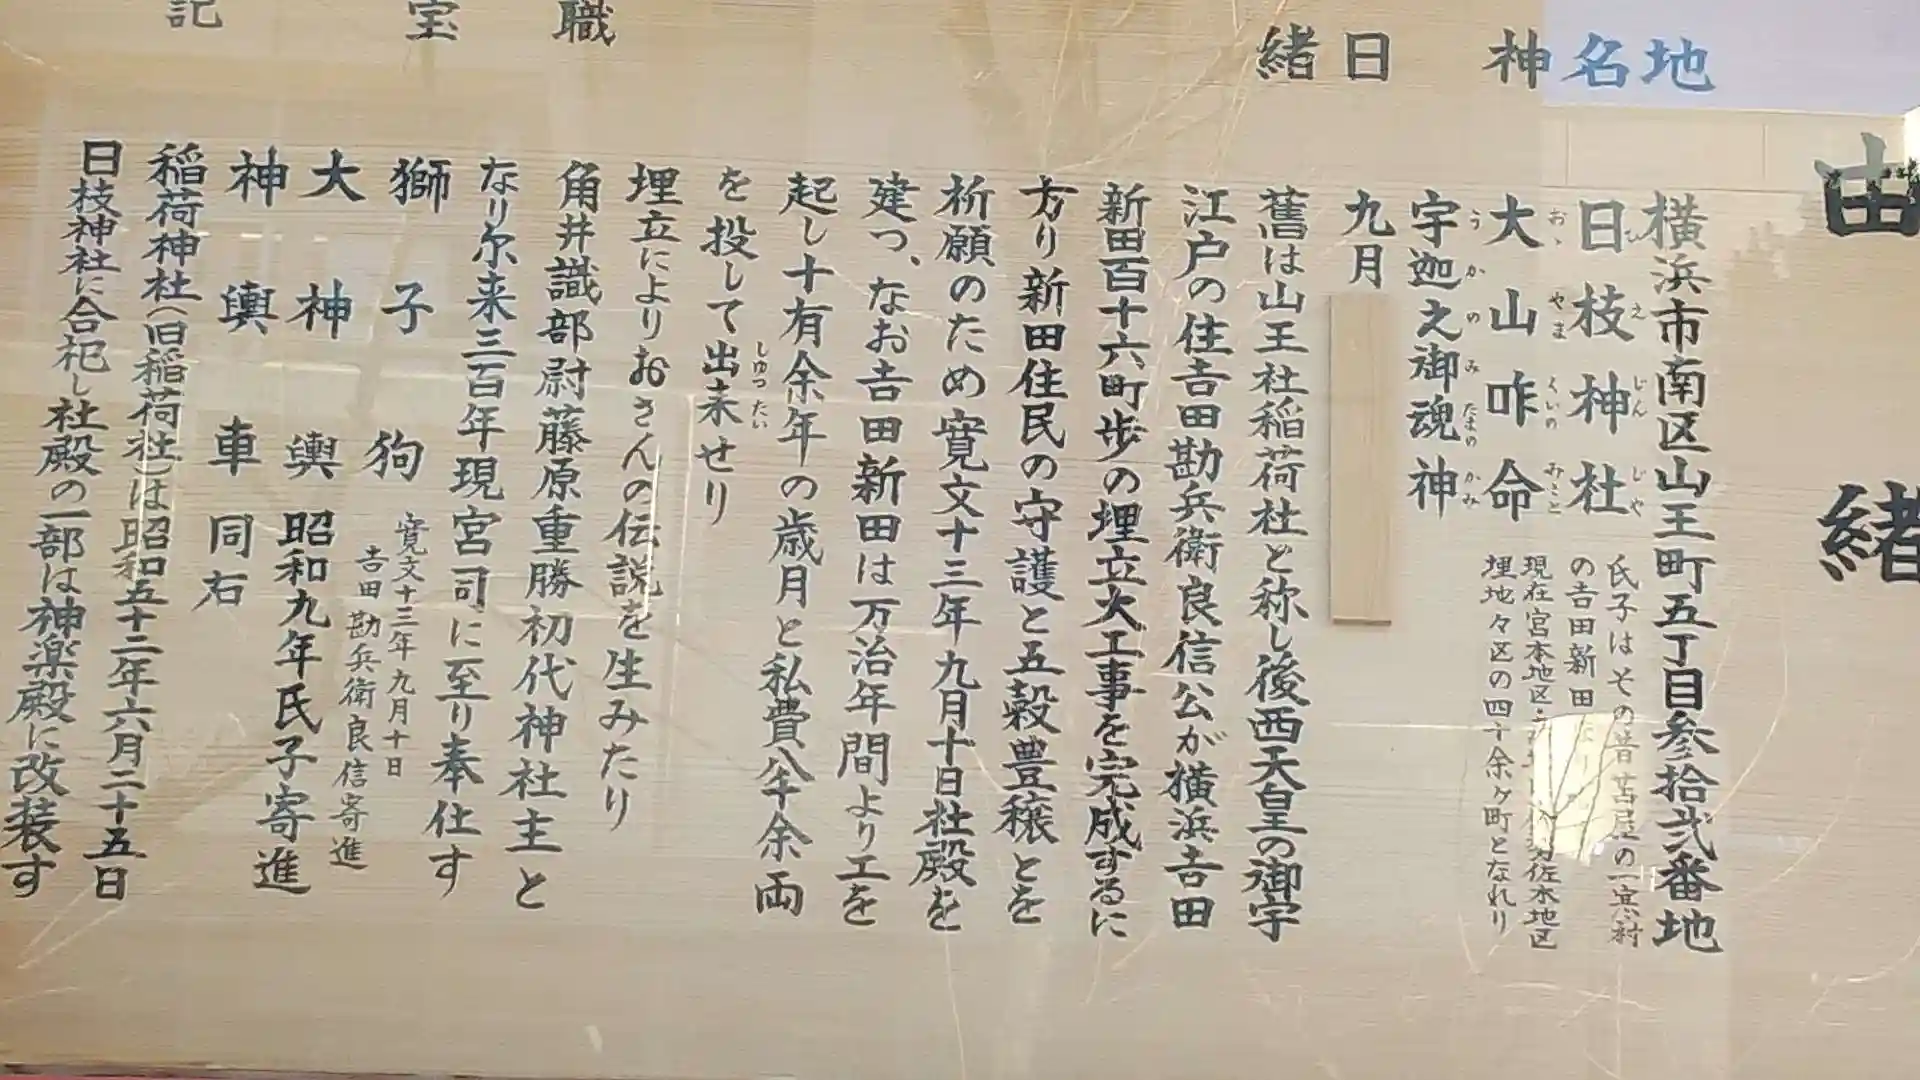 由緒
地 横浜市南区山王町五丁目参拾弐番地
名 日枝神社
ひえじんじゃ
氏子はその昔苫屋の一寒村
の吉田新田
現在宮本地区
佐木地区
埋地々区の四十余ヶ町となれり
神 大山咋命
おゝやまくいのみこと
宇迦之御魂神
うかのみたまのかみ
日 九月
緒 舊は山王社稲荷社と称し後西天皇の御宇
江戸の住吉田勘兵衛良信公が横浜吉田
新田百十六町歩の埋立大工事を完成するに
方り新田住民の守護と五穀豊穣とを
祈願のため寛文十三年九月十日社殿を
建つ、なお吉田新田は万治年間より工を
起し十有余年の歳月と私費八千余両
を投して出来せり
しゅったい
埋立によりおさんの伝説を生みたり
職 角井識部尉藤原重勝初代神社主と
なり尓来三百年現宮司に至り奉仕す
宝 獅子狗
寛文十三年九月十日
吉田勘兵衛良信寄進
大神輿 昭和九年氏子寄進
神輿車 同右
記 稲荷神社(旧稲荷社)は昭和五十二年六月二十五日
日枝神社に合祀し社殿の一部は神楽殿に改装す